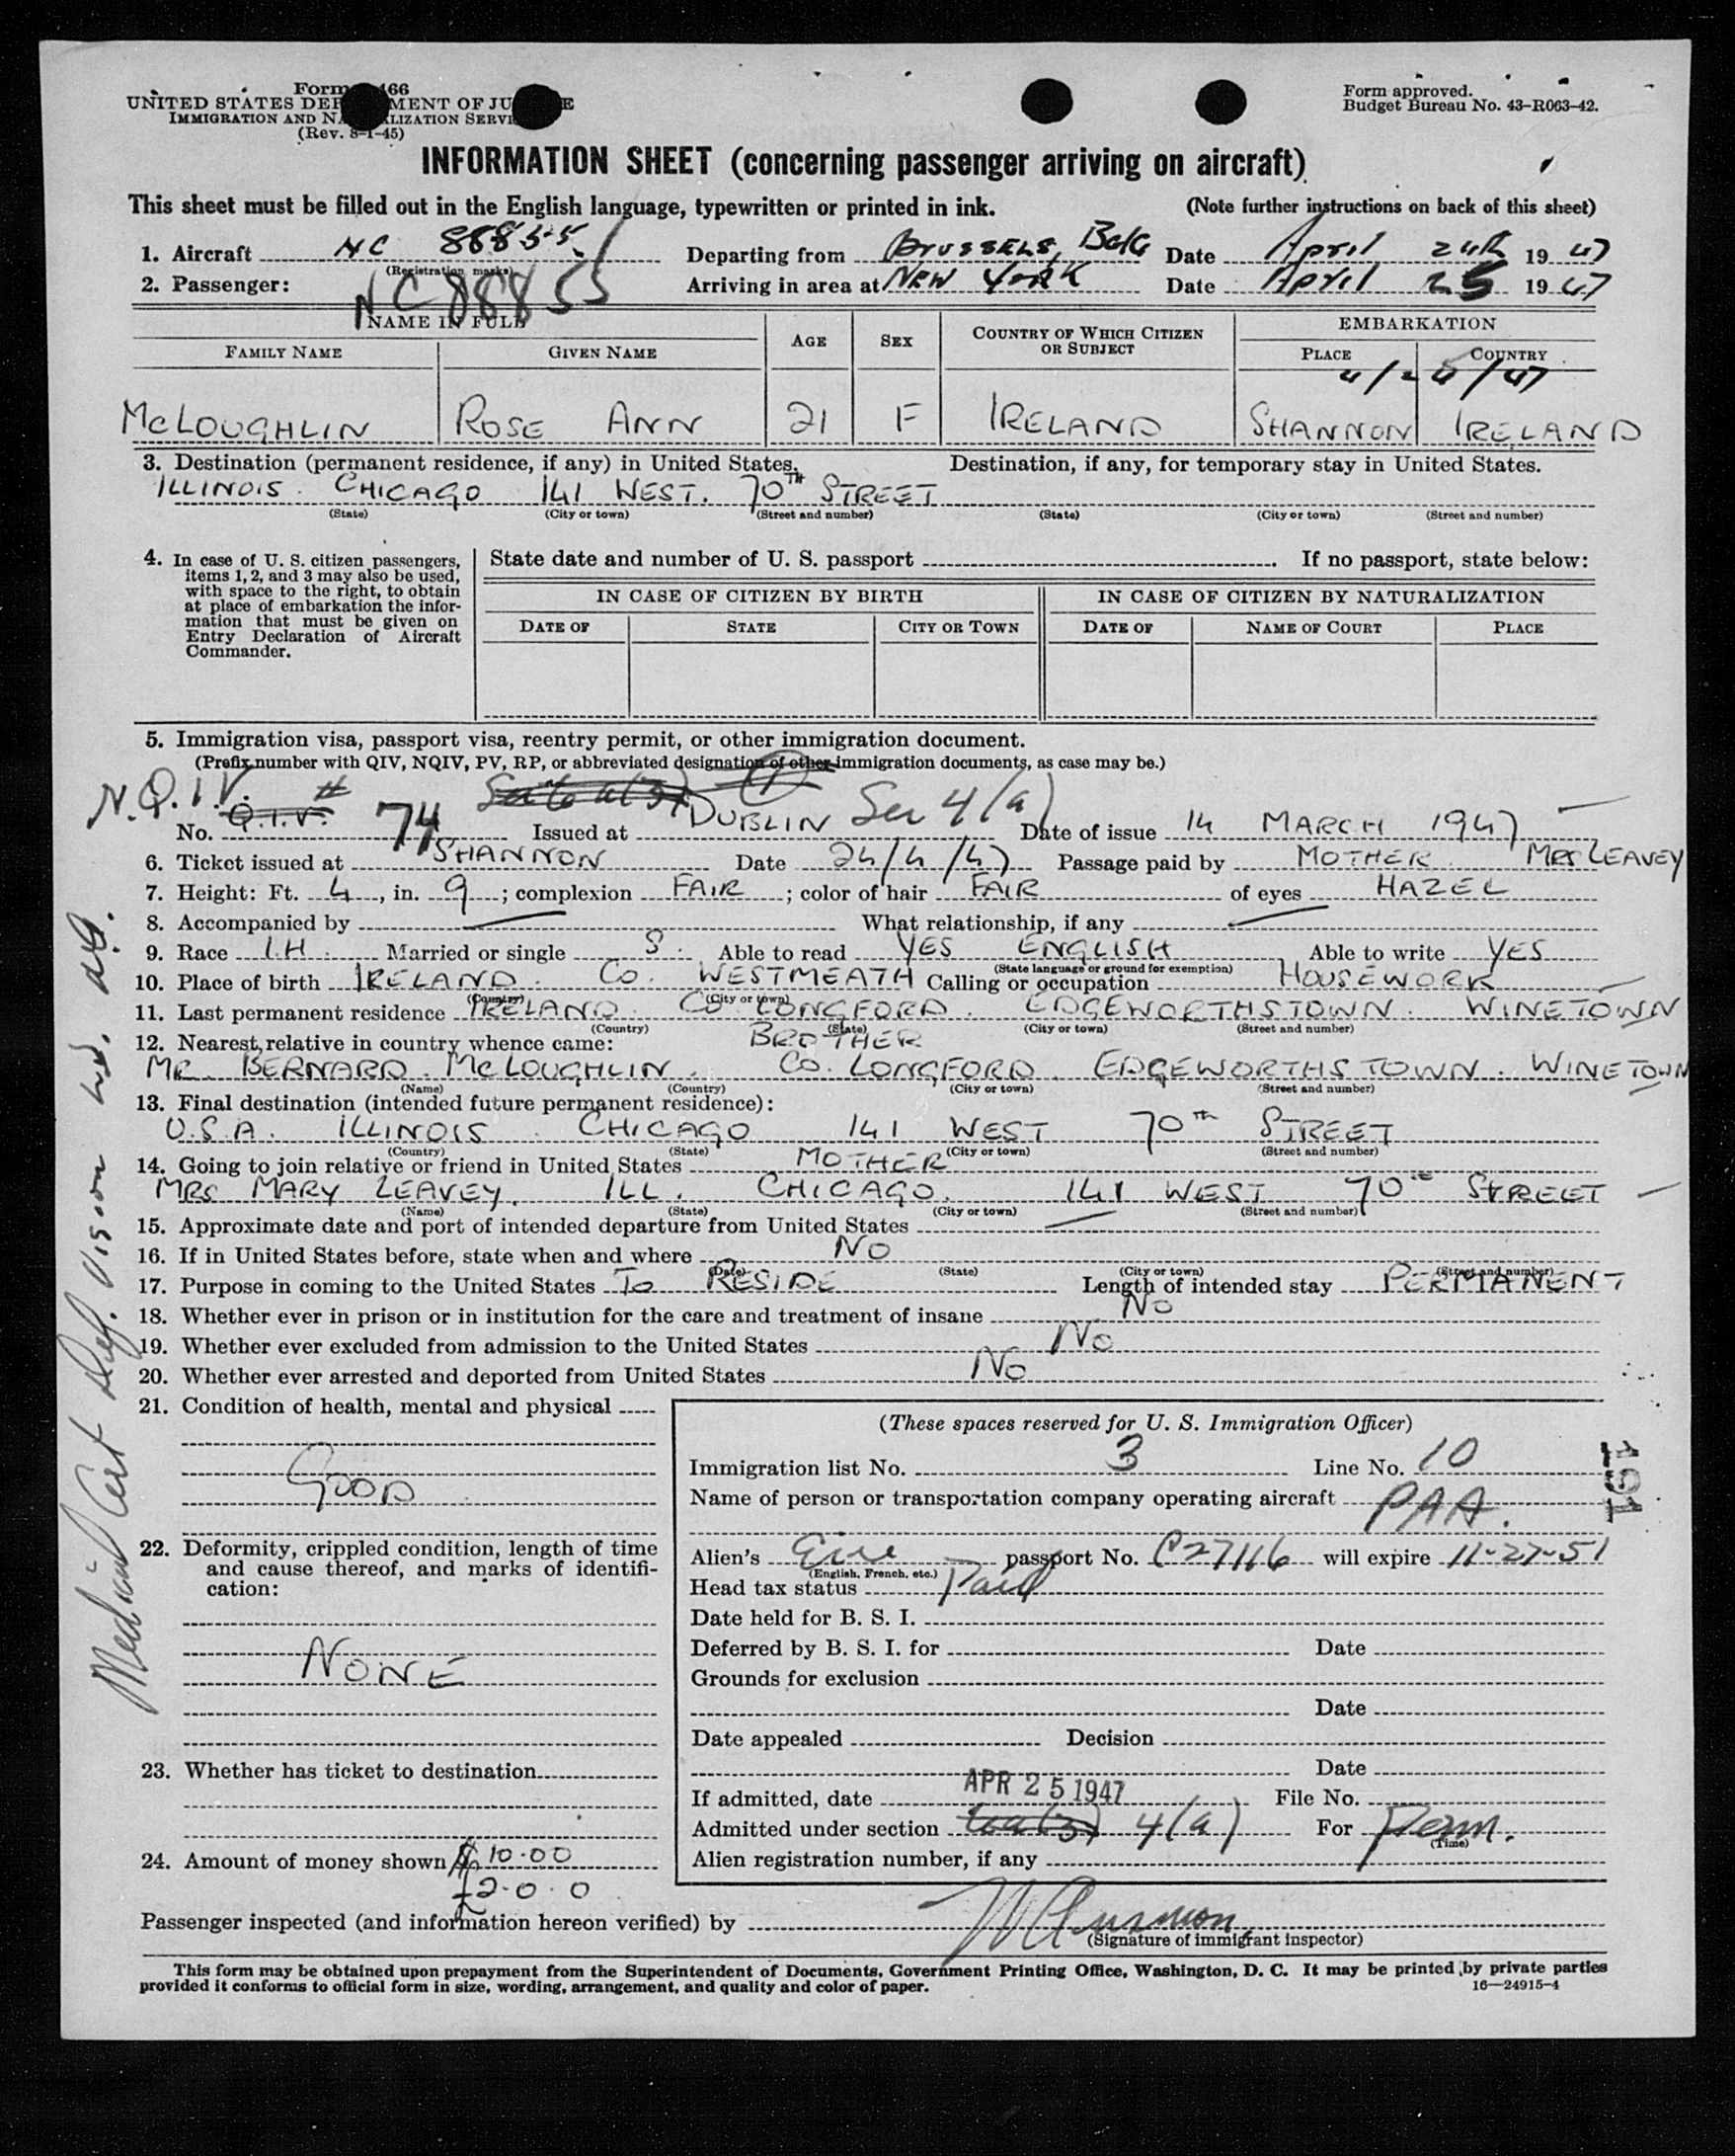 Form 466
UNITED STATES DEP MENT OF JU E
IMMIGRATION AND NA LIZATION SERVI
(Rev. 8-1-45)
Form approved.
Budget Bureau No. 43-R063-42.
INFORMATION SHEET (concerning passenger arriving on aircraft)
This sheet must be filled out in the English language, typewritten or printed in ink. (Note further instructions on back of this sheet)
1. Aircraft NC 88855 Departing from BRUSSELS, Belg Date April 24th 1947
(Registration marks)
2. Passenger: NC 88855 Arriving in area at NEW YORK Date April 25 1947
NAME IN FULL AGE SEX COUNTRY OF WHICH CITIZEN OR SUBJECT EMBARKATION
FAMILY NAME GIVEN NAME PLACE COUNTRY
4/25/47
MCLOUGHLIN ROSE ANN 21 F IRELAND SHANNON IRELAND
3. Destination (permanent residence, if any) in United States. Destination, if any, for temporary stay in United States.
ILLINOIS. CHICAGO 141 WEST. 70TH STREET
(State) (City or town) (Street and number) (State) (City or town) (Street and number)
4. In case of U. S. citizen passengers, items 1, 2, and 3 may also be used, with space to the right, to obtain at place of embarkation the information that must be given on Entry Declaration of Aircraft Commander.
State date and number of U. S. passport If no passport, state below:
IN CASE OF CITIZEN BY BIRTH IN CASE OF CITIZEN BY NATURALIZATION
DATE OF STATE CITY OR TOWN DATE OF NAME OF COURT PLACE
5. Immigration visa, passport visa, reentry permit, or other immigration document.
(Prefix number with QIV, NQIV, PV, RP, or abbreviated designation of other immigration documents, as case may be.)
N.Q.I.V. #
No. Q.I.V. 74 Issued at DUBLIN Sec 4(a) Date of issue 14 MARCH 1947
6. Ticket issued at SHANNON Date 24/4/47 Passage paid by MOTHER MRS LEAVEY
7. Height: Ft. 4, in. 9; complexion FAIR; color of hair FAIR of eyes HAZEL
8. Accompanied by What relationship, if any
9. Race I.H. Married or single S. Able to read YES ENGLISH Able to write YES
(State language or ground for exemption)
10. Place of birth IRELAND. CO. WESTMEATH Calling or occupation HOUSEWORK
(Country) (City or town)
11. Last permanent residence IRELAND. CO LONGFORD. EDGEWORTHSTOWN. WINETOWN
(Country) (State) (City or town) (Street and number)
12. Nearest relative in country whence came: BROTHER
MR. BERNARD. MCLOUGHLIN. CO. LONGFORD. EDGEWORTHSTOWN. WINETOWN
(Name) (Country) (City or town) (Street and number)
13. Final destination (intended future permanent residence):
U.S.A. ILLINOIS CHICAGO 141 WEST 70th STREET
(Country) (State) (City or town) (Street and number)
14. Going to join relative or friend in United States MOTHER
MRS MARY LEAVEY. ILL. CHICAGO. 141 WEST 70th STREET
(Name) (State) (City or town) (Street and number)
15. Approximate date and port of intended departure from United States
16. If in United States before, state when and where NO
(Date) (State) (City or town) (Street and number)
17. Purpose in coming to the United States TO RESIDE Length of intended stay PERMANENT
18. Whether ever in prison or in institution for the care and treatment of insane NO
19. Whether ever excluded from admission to the United States NO
20. Whether ever arrested and deported from United States NO
21. Condition of health, mental and physical
GOOD
22. Deformity, crippled condition, length of time and cause thereof, and marks of identification:
NONE
23. Whether has ticket to destination
24. Amount of money shown $10.00
£2.0.0
(These spaces reserved for U. S. Immigration Officer)
Immigration list No. 3 Line No. 10
Name of person or transportation company operating aircraft PAA.
Alien's Eire passport No. C27116 will expire 11-27-51
(English, French, etc.)
Head tax status Paid
Date held for B. S. I.
Deferred by B. S. I. for Date
Grounds for exclusion
Date
Date appealed Decision
Date
If admitted, date APR 25 1947 File No.
Admitted under section 4(a) For Perm.
(Time)
Alien registration number, if any
Passenger inspected (and information hereon verified) by
(Signature of immigrant inspector)
This form may be obtained upon prepayment from the Superintendent of Documents, Government Printing Office, Washington, D. C. It may be printed by private parties
provided it conforms to official form in size, wording, arrangement, and quality and color of paper. 16—24915-4
Medical Cert Def. Vision
191